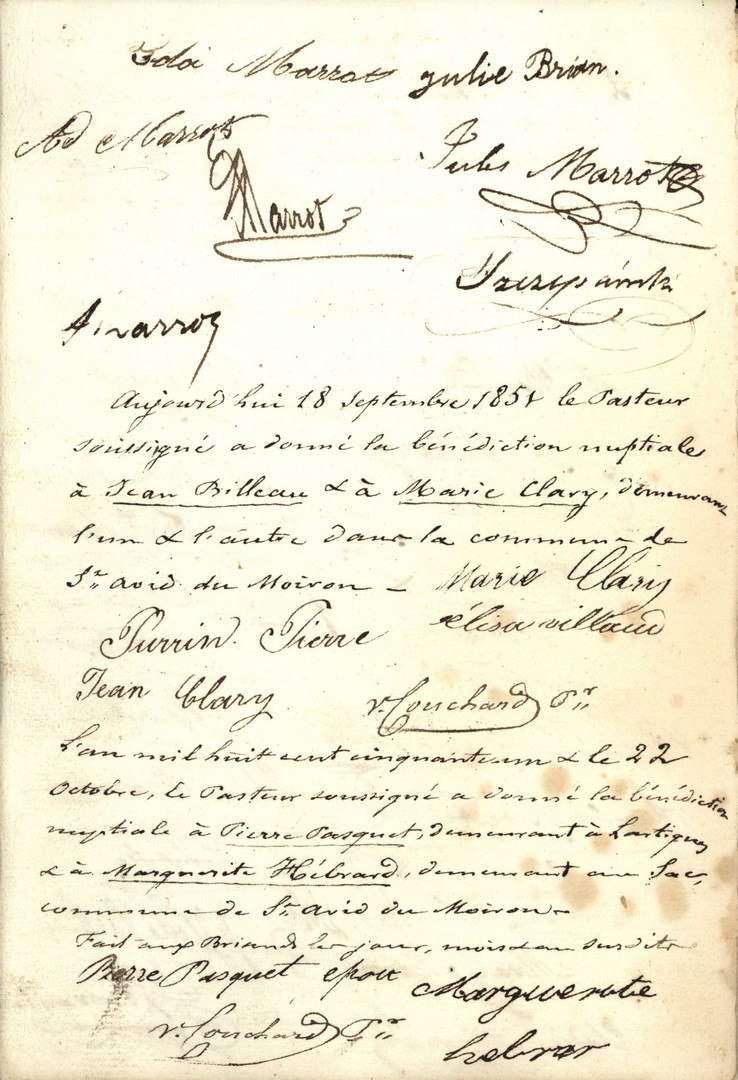 Ida Marrot Julie Brian.
Ad Marrot
Jules Marrot
Marrot
Marrot
Aujourd'hui 18 Septembre 1851 le Pasteur
soussigné a donné la bénédiction nuptiale
à Jean Billeau & à Marie Clary, demeurant
l'un & l'autre dans la commune de
St. avid du Moiron –
Marie Clary
élisa villaud
Perrin Pierre
Jean Clary
v. Couchard Pr.
L'an mil huit cent cinquante un & le 22
Octobre, le Pasteur soussigné a donné la bénédiction
nuptiale à Pierre Pasquet, demeurant à Lartigue
& à Marguerite Hébrard, demeurant au Sac,
commune de St. avid du Moiron –
Fait aux Briands les jour, mois & an susdits
Pierre Pasquet epou
Marguerite
hebrar
v. Couchard Pr.